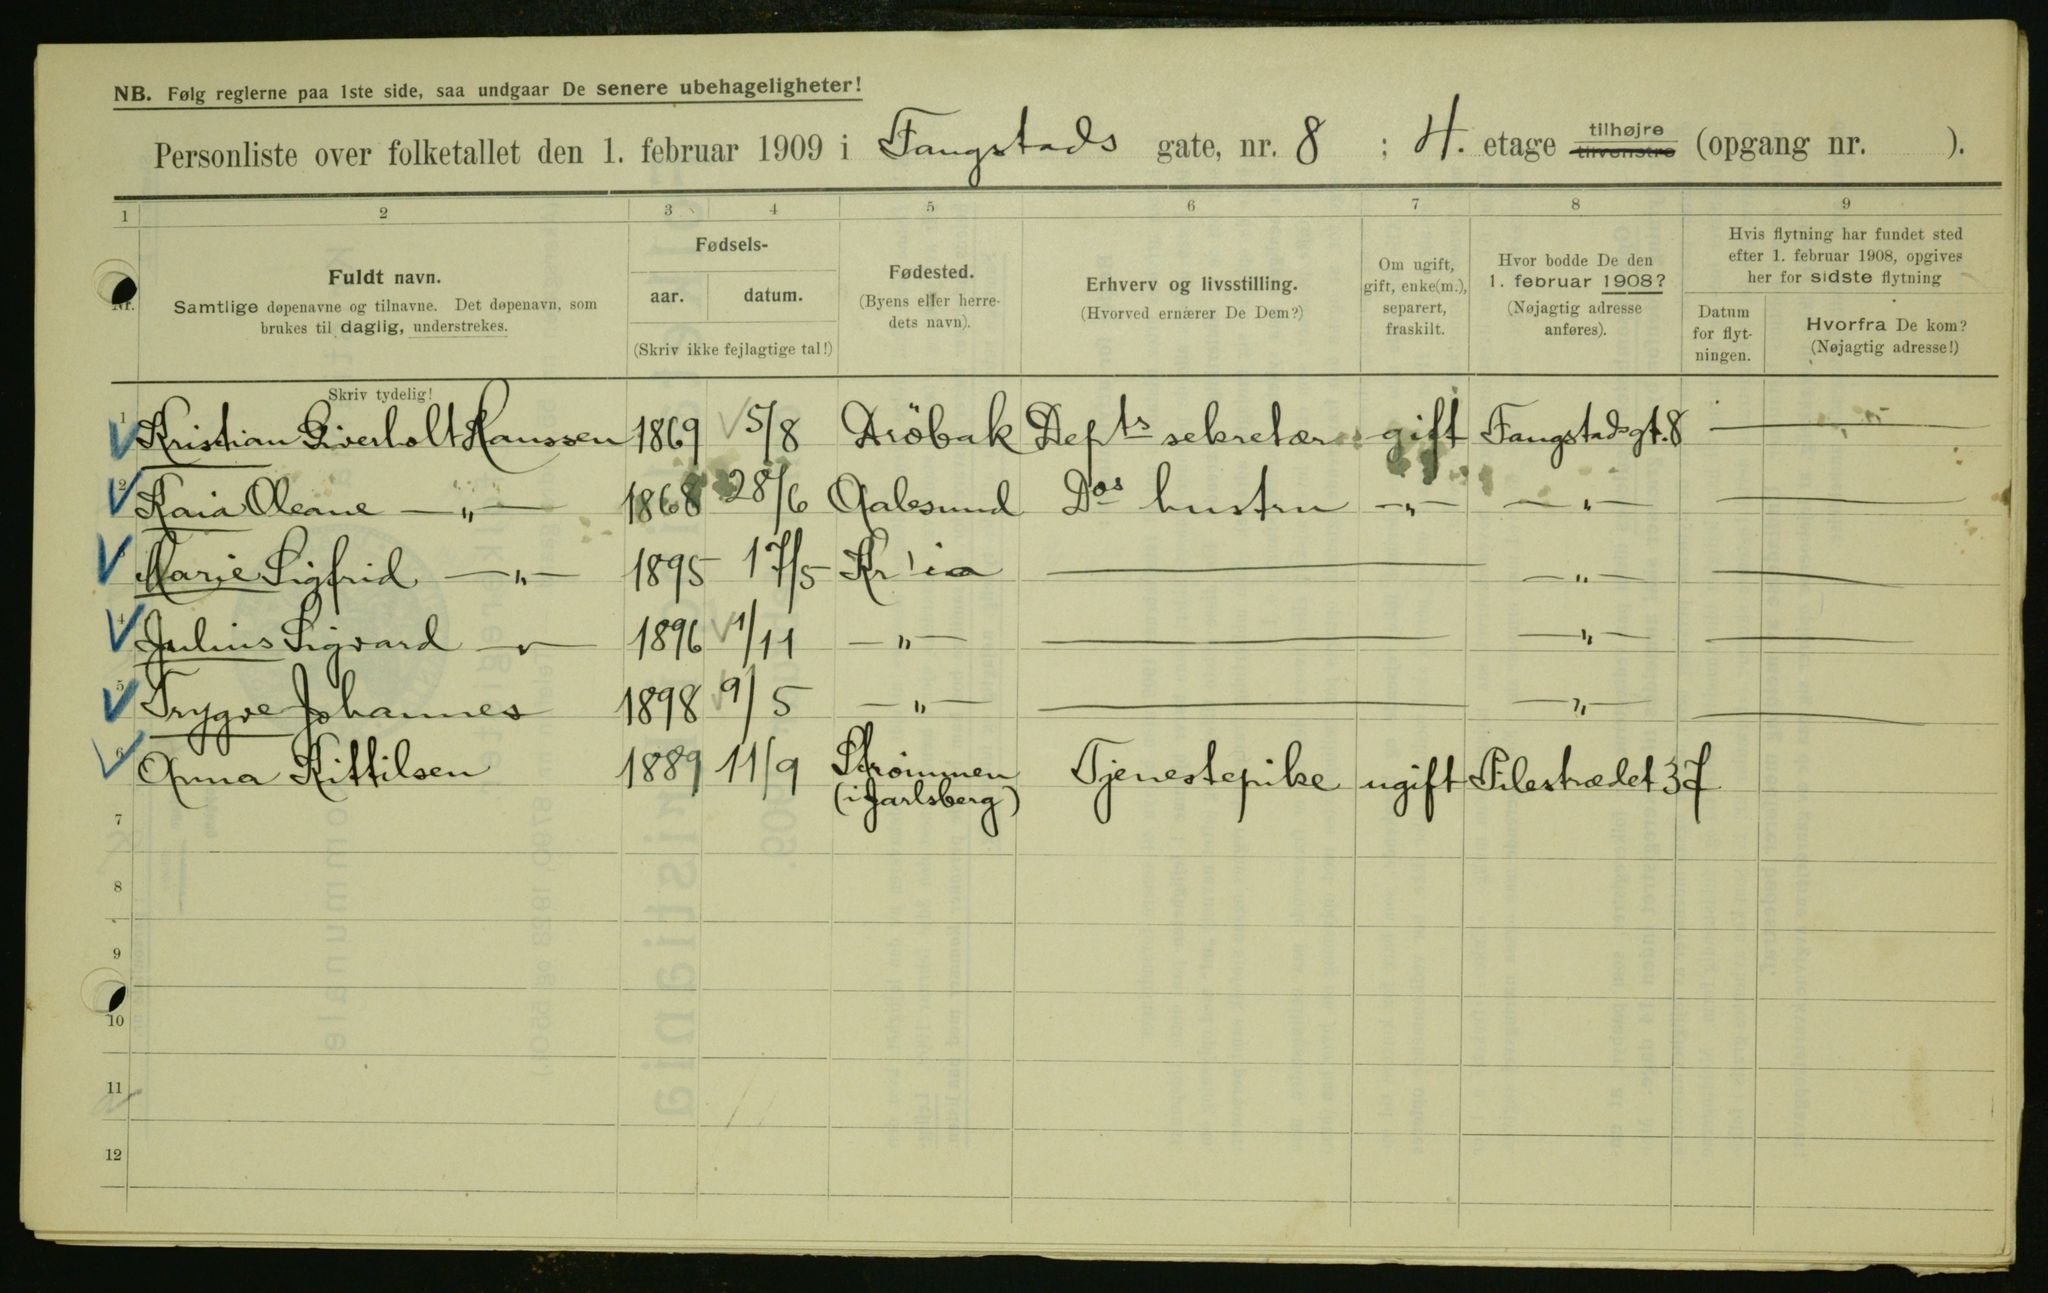 NB. Følg reglerne paa 1ste side, saa undgaar De senere ubehageligheter!
Personliste over folketallet den 1. februar 1909 i Fangstads gate, nr. 8 ; 4. etage tilhøjre tilvenstre (opgang nr. ).
1 2 3 4 5 6 7 8 9
Nr.
Fuldt navn.
Samtlige døpenavne og tilnavne. Det døpenavn, som
brukes til daglig, understrekes.
Fødsels-
aar. datum.
(Skriv ikke fejlagtige tal!)
Fødested.
(Byens eller herre-
dets navn).
Erhverv og livsstilling.
(Hvorved ernærer De Dem?)
Om ugift,
gift, enke(m.),
separert,
fraskilt.
Hvor bodde De den
1. februar 1908?
(Nøjagtig adresse
anføres).
Hvis flytning har fundet sted
efter 1. februar 1908, opgives
her for sidste flytning
Datum
for flyt-
ningen.
Hvorfra De kom?
(Nøjagtig adresse!)
Skriv tydelig!
1 Kristian Giverholt Hanssen 1869 5/8 Dröbak Depts sekretær gift Fangstadsgt. 8 —
2 Kaia Oleane —"— 1868 28/6 Aalesund Dos hustru —"— —"— —
3 Marie Sigfrid —"— 1895 17/5 Kr'ia — —"— —
4 Julius Sigvard —"— 1896 1/11 —"— — —"— —
5 Trygve Johannes 1898 9/5 —"— — —"— —
6 Anna Kittilsen 1889 11/9 Strömmen (i Jarlsberg) Tjenestepike ugift Pilestrædet 37
7
8
9
10
11
12